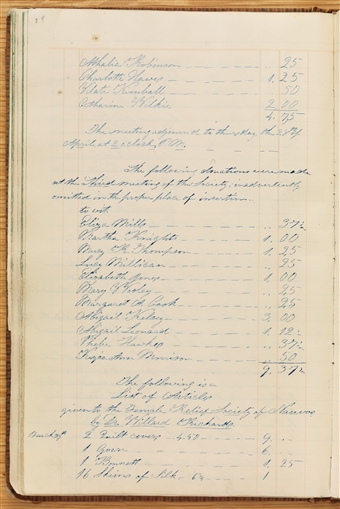 Athalia Robinson — — — .. 25
Charlotte Haven — — — 1. 25
Kate Kimball — — — 50
Catharine Wilkie — — 2. 00
4. 75
The meeting adjourned to thursday the 28th of
April at 2 o'clock, P.M.
The following donations were made
at the third meeting of the Society, inadvertently
omitted in the proper place of insertion
to wit.
Eliza Mills — — — .. 37½
Bartha Knights — — 1. 00
Mary K. Thompson — — 1. 25
Milligan — — .. 25
Elizabeth Jones — — 1. 00
Mary — — .. 25
Margaret A. Cook — — .. 25
Abigail — — 3. 00
Abigail Leonard — — 1. 12½
Phebe Hawkes — — .. 37½
Keziah Ann Morrison — — .. 50
9. 37½
The following is a
List of Articles
given to the Female Relief Society of Nauvoo
by Dr. Willard Richards
2 Quilt covers 4.50 — 9. ..
1 Gown — 6. ..
1 Bonnett — 1. 25
16 Skeins of Silk — 1